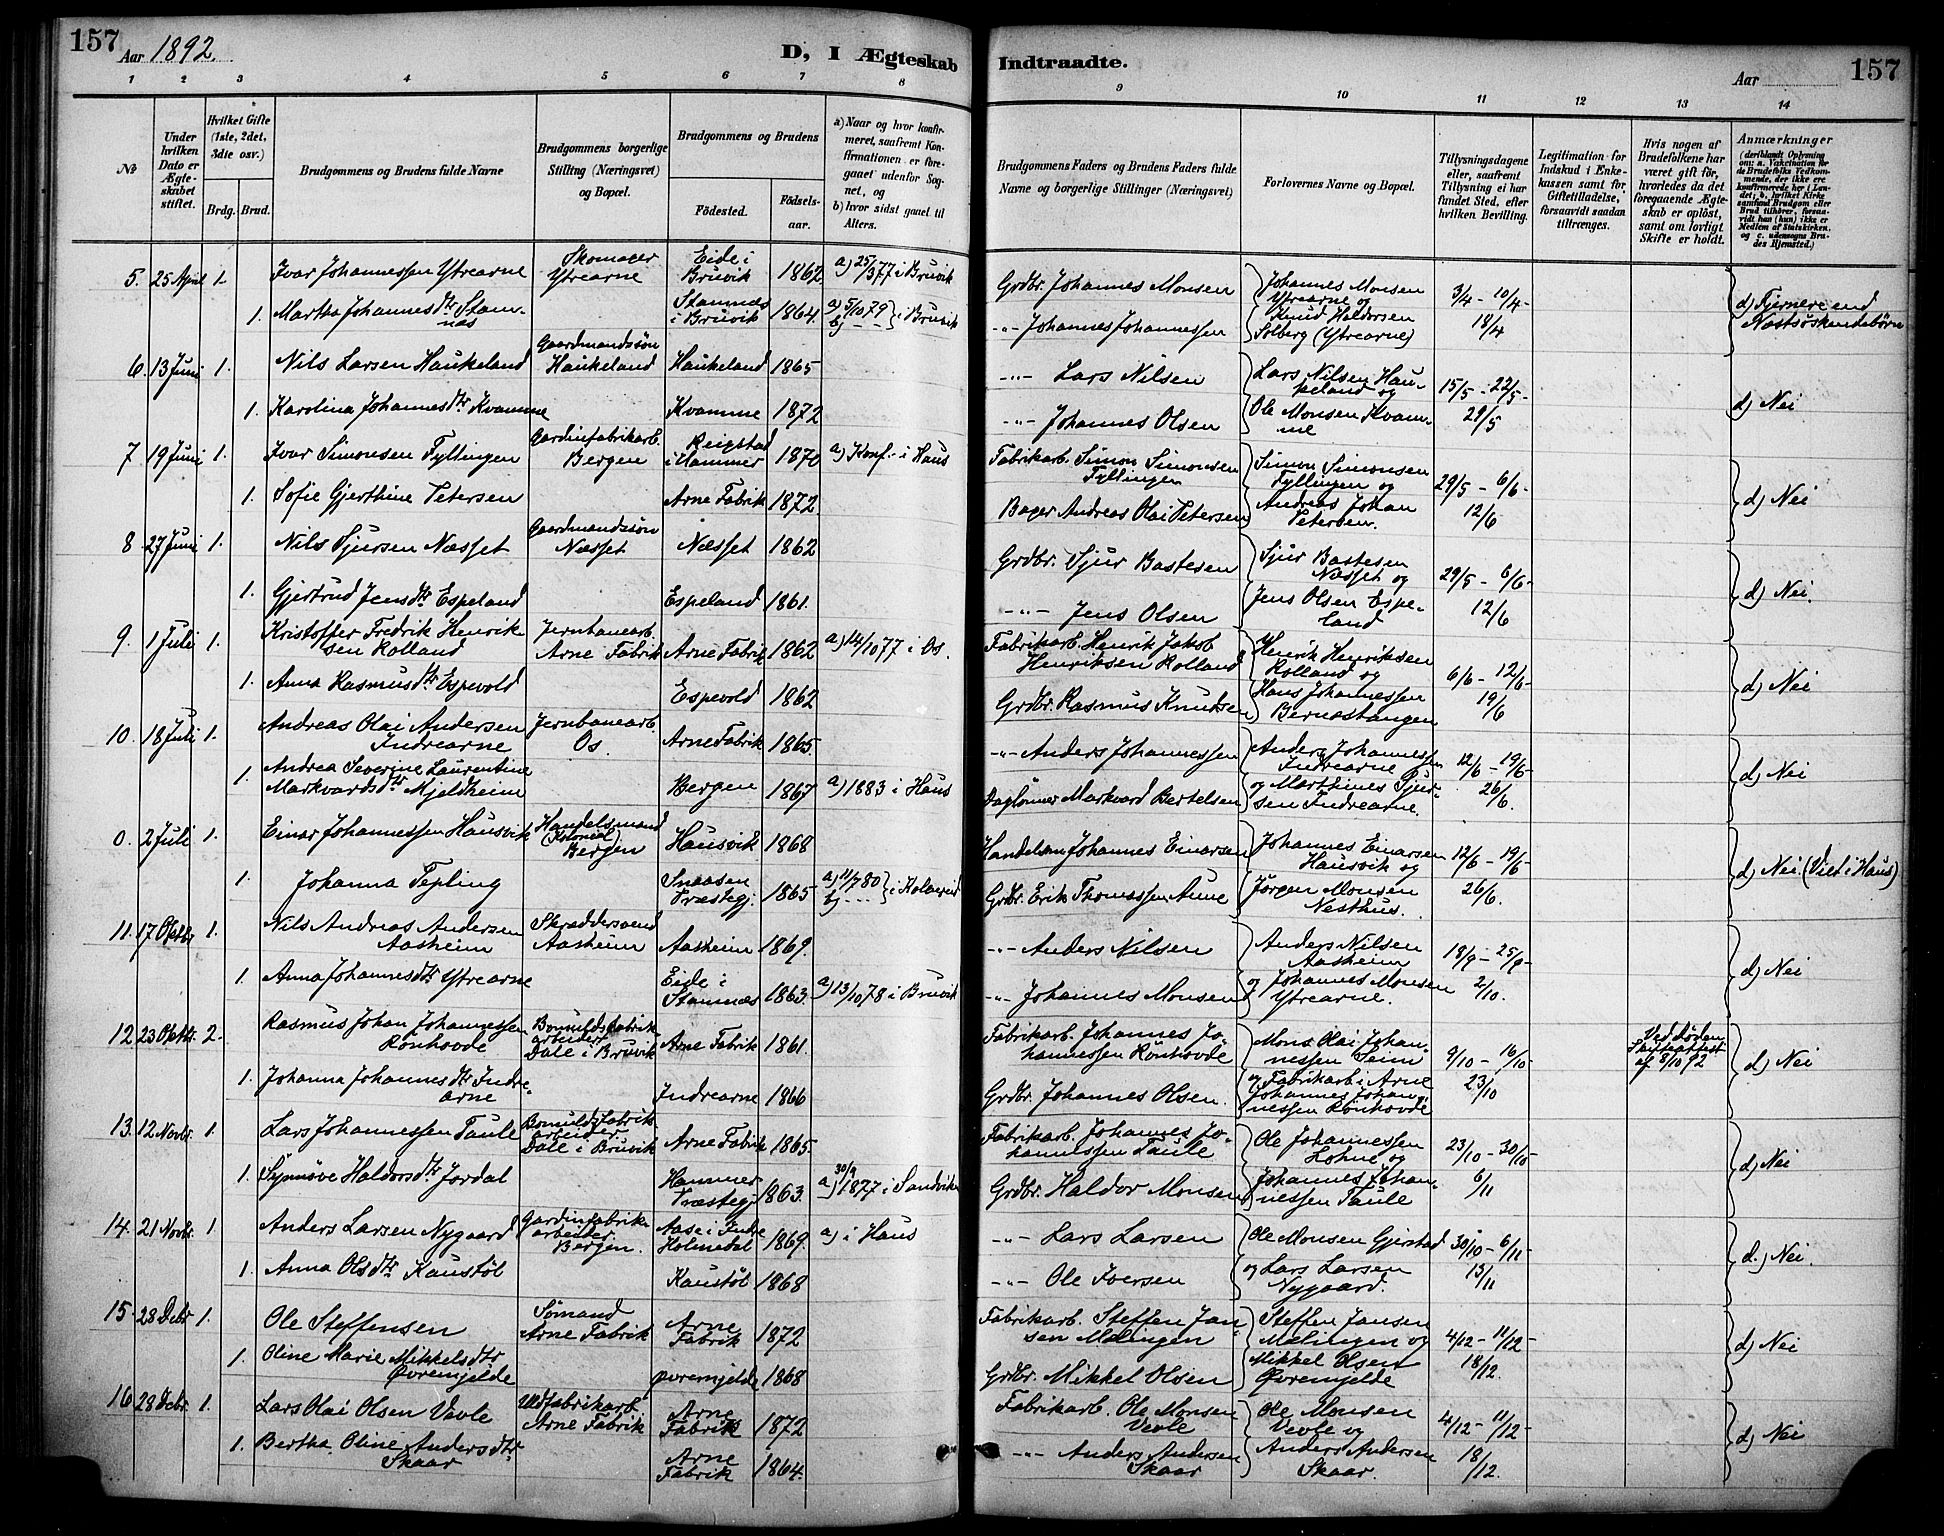 157
Aar 1892.
D, I Ægteskab
Indtraadte.
Aar
157
1 2 3 4 5 6 7 8
9 10 11 12 13 14
No
Under hvilken Dato er Ægteskabet stiftet.
Hvilket Gifte (1ste, 2det, 3die osv.)
Brdg. Brud.
Brudgommens og Brudens fulde Navne
Brudgommens borgerlige Stilling (Næringsvei) og Bopæl.
Brudgommens og Brudens
Födested.
Födselsaar.
a) Naar og hvor konfirmeret, saafremt Konfirmationen er foregaaet udenfor Sognet, og
b) hvor sidst gaaet til Alters.
Brudgommens Faders og Brudens Faders fulde Navne og borgerlige Stillinger (Næringsvei)
Forlovernes Navne og Bopæl.
Tillysningsdagene eller, saafremt Tillysning ei har fundet Sted, efter hvilken Bevilling.
Legitimation for Indskud i Enkekassen samt for Giftetilladelse, forsaavidt saadan tiltrænges.
Hvis nogen af Brudefolkene har været gift før, hvorledes da det foregaaende Ægteskab er oplöst, samt om lovligt Skifte er holdt.
Anmærkninger (deriblandt Oplysning om: a. Vakcination for de Brudefolks Vedkommende, der ikke ere konfirmerede her i Landet; b. hvilket Kirkesamfund Brudgom eller Brud tilhører, forsaavidt han (hun) ikke er Medlem af Statskirken, og c. udensogns Brudes Hjemsted.)
5. 25 April 1. Ivar Johannessen Ytrearne Skomager Ytrearne Eide i Bruvik 1862 a) 25/3 77 i Bruvik Grdbr. Johannes Monsen Johannes Monsen Ytrearne og 3/4 - 10/4 - d) Fjernere end
1. Martha Johannesdtr Stamnæs Stamnæs i Bruvik 1864 a) 5/10 79 b) - - - i Bruvik -"- Johannes Johannessen Knud Haldorsen Solberg (Ytrearne) 18/4 Næstsøskendebørn
6. 13 Juni 1. Nils Larsen Haukeland Gaardmandssøn Haukeland Haukeland 1865 -"- Lars Nilsen Lars Nilsen Haukeland og 15/5 - 22/5 -
1. Karolina Johannesdtr Kvamme Kvamme 1872 -"- Johannes Olsen Ole Monsen Kvamme 29/5 d) Nei
7 19 Juni 1. Ivar Simonsen Fyllingen Gardinfabrikarb. Bergen Reigstad i Hammer 1870 a) Konf. i Haus Fabrikarb. Simon Simonsen Fyllingen Simon Simonsen Fyllingen og 29/5 - 6/6 -
1. Sofie Gjerthine Petersen Arne Fabrik 1872 Bager Andreas Olai Petersen Andreas Johan Petersen. 12/6 d) Nei
8 27 Juni 1. Nils Sjursen Næsset Gaardmandssøn Næsset Næsset 1862 Grdbr. Sjur Bastesen Sjur Bastesen Næsset og 29/5 - 6/6 -
1. Gjertrud Jensdtr Espeland Espeland 1861. -"- Jens Olsen Jens Olsen Espeland 12/6 d) Nei.
9. 1 Juli 1. Kristoffer Fredrik Henriksen Rolland Jernbanearb. Arne Fabrik Arne Fabrik 1862 a) 14/10 77 i Os. Fabrikarb. Henrik Jakob Henriksen Rolland Henrik Henriksen Rolland og 6/6 - 12/6 -
1. Anna Rasmusdtr Espevold Espevold 1862 Grdbr. Rasmus Knudsen Hans Johannessen Bernæstangen 19/6 d) Nei
10. 18 Juli 1. Andreas Olai Andersen Indrearne Jernbanearb. Os. Arne Fabrik 1865 -"- Anders Johannessen Anders Johannessen Indrearne 12/6 - 19/6 -
1. Andrea Severine Laurentine Markvardsdtr Mjeldheim Bergen 1867 a) 1883 i Haus Daglønner Markvard Bertelsen og Marthines Sjursen Indrearne. 26/6. d) Nei
0. 2 Juli 1. Einar Johannessen Hausvik Handelsmand (Kolonial) Bergen Hausvik 1868 Handelsm Johannes Einarsen Johannes Einarsen Hausvik og 12/6 - 19/6 -
1. Johanna Tepling Snaasen Præstegj. 1865 a) 11/7 80 b) - - - i Kolvereid Grdbr. Erik Thomassen Aune Jørgen Monsen Nesthus. 26/6. d) Nei (Viet i Haus)
11. 17 Oktbr 1. Nils Andreas Andersen Aasheim Skræddersvend Aasheim Aasheim 1869. -"- Anders Nilsen Anders Nilsen Aasheim 18/9 - 25/9 -
1. Anna Johannesdtr Ytrearne Eide i Stamnæs 1863. a) 13/10 78 i Bruvik -"- Johannes Monsen og Johannes Monsen Ytrearne. 2/10. d) Nei
12 23 Oktbr. 2. Rasmus Johan Johannessen Rønhovde Bomuldsfabrikarbeider Dale i Bruvik Arne Fabrik 1861. Fabrikarb. Johannes Johannessen Rønhovde Mons Olai Johannessen Seim 9/10 - 16/10 - Ved Døden Skifteattest af 8/10 92
1. Johanna Johannesdtr Indrearne Indrearne 1866 Grdbr. Johannes Olsen. og Fabrikarb. i Arne Johannes Johannessen Rønhovde 23/10 d) Nei
13. 12 Novbr. 1. Lars Johannessen Taule Bomuldsfabrikarbeider Dale i Bruvik Arne Fabrik 1865. Fabrikarb. Johannes Johannessen Taule Ole Johannessen Lohne og 23/10 - 30/10 -
1. Synnøve Haldorsdtr Jordal Hammer Præstegj. 1863. a) 30/9 1877 i Sandviken Grdbr. Haldor Monsen Johannes Johannessen Taule 6/11 d) Nei
14. 21 Novbr. 1. Anders Larsen Nygaard Gardinfabrikarbeider Bergen. Aase i Indre Holmedal 1869. a) i Haus -"- Lars Larsen Ole Monsen Gjerstad 30/10 - 6/11 -
1. Anna Olsdtr Kaustøl Kaustøl 1868 -"- Ole Iversen og Lars Larsen Nygaard. 13/11 d.) Nei.
15. 28 Debr 1. Ole Steffensen Sømand Arne Fabrik Arne Fabrik 1872 Fabrikarb. Steffen Jansen Mælingen Steffen Jansen Mælingen og 4/12 - 11/12 -
1. Oline Marie Mikkelsdtr Øvremjelde Øvremjelde 1868 Grdbr. Mikkel Olsen Mikkel Olsen Øvremjelde 18/12. d) Nei
16 28 Debr. 1. Lars Olai Olsen Vevle Uldfabrikarb. Arne Fabrik Arne Fabrik 1872 Fabrikarb. Ole Monsen Vevle Ole Monsen Vevle og 4/12 - 11/12 -
1. Bertha Oline Andersdtr Skaar Arne Fabrik 1864. -"- Anders Andersen Skaar Anders Andersen Skaar. 18/12. d) Nei